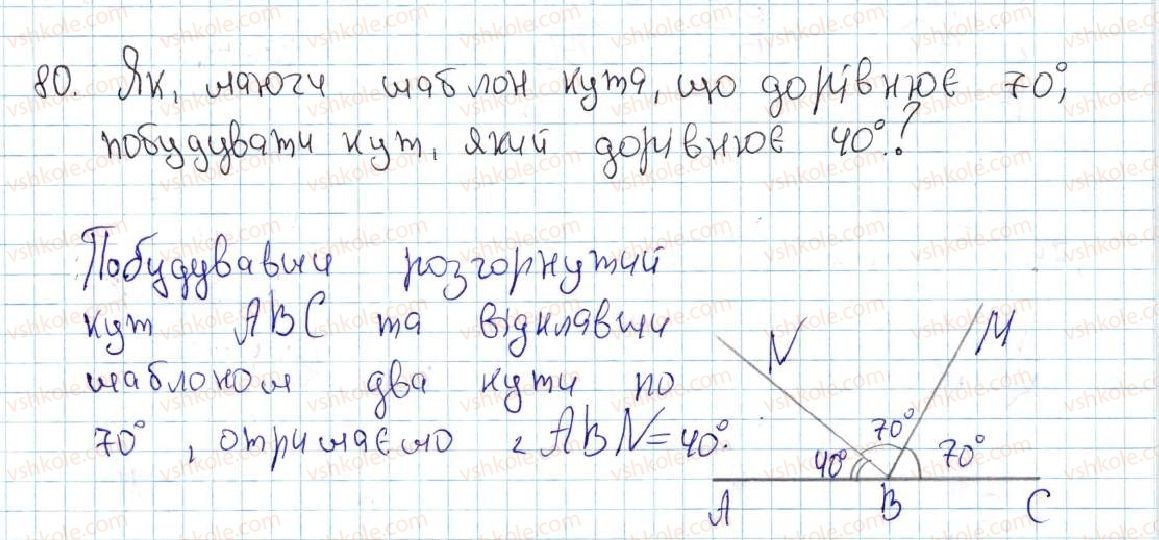 80. Як, маючи шаблон кута, що дорівнює 70°,
побудувати кут, який дорівнює 40°?
Побудувавши розгорнутий
кут ABC та відклавши
шаблоном два кути по
70°, отримаємо ∠ ABN = 40°.
N M
70°
40° 70°
A B C
vshkole.com